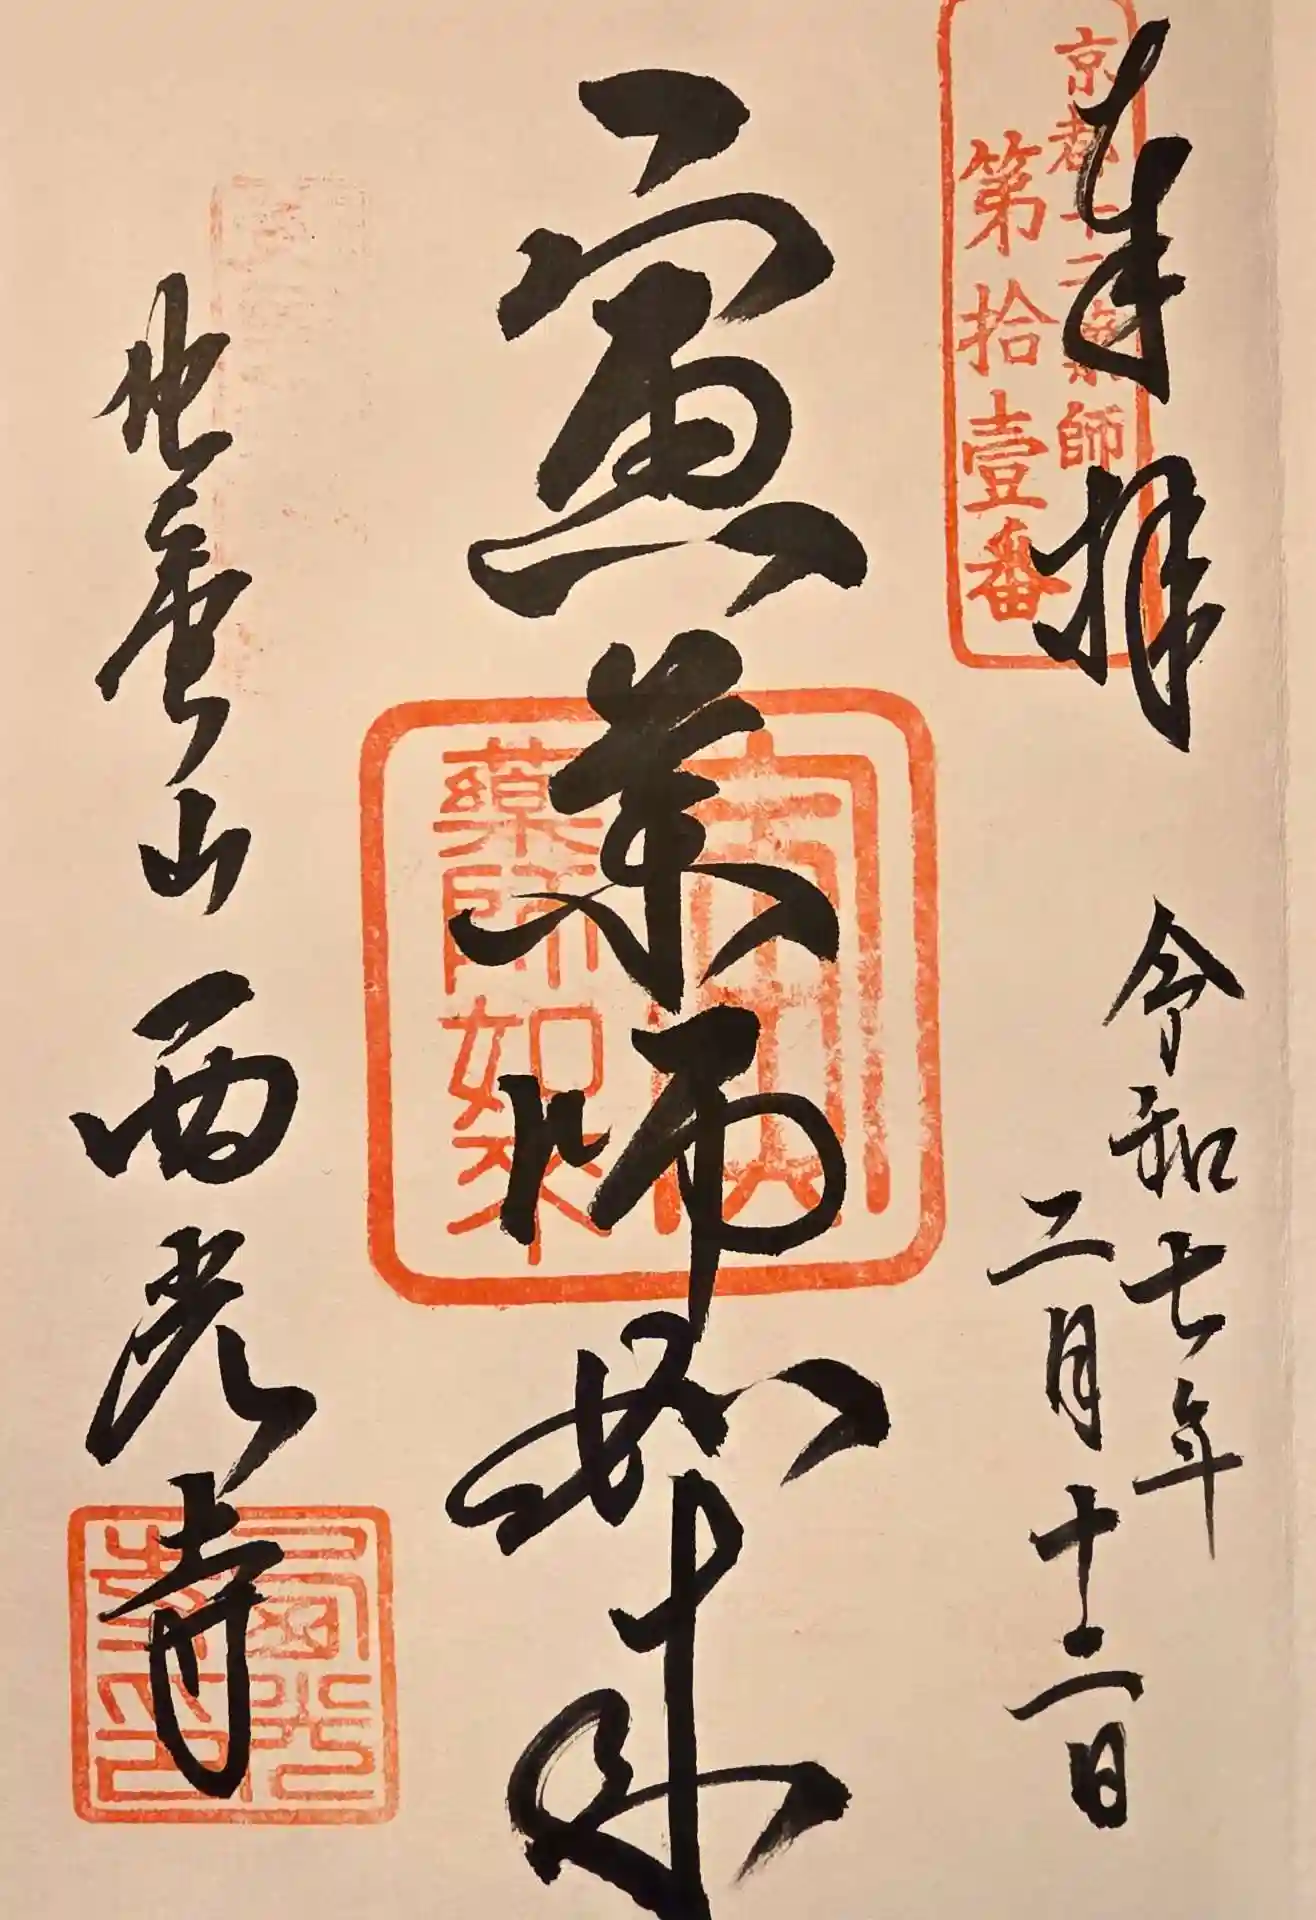 奉拝
京都十二薬師
第拾壹番
令和七年
二月十二日
寅薬師如来
寅薬師如来
北亀山西光寺
西光寺印